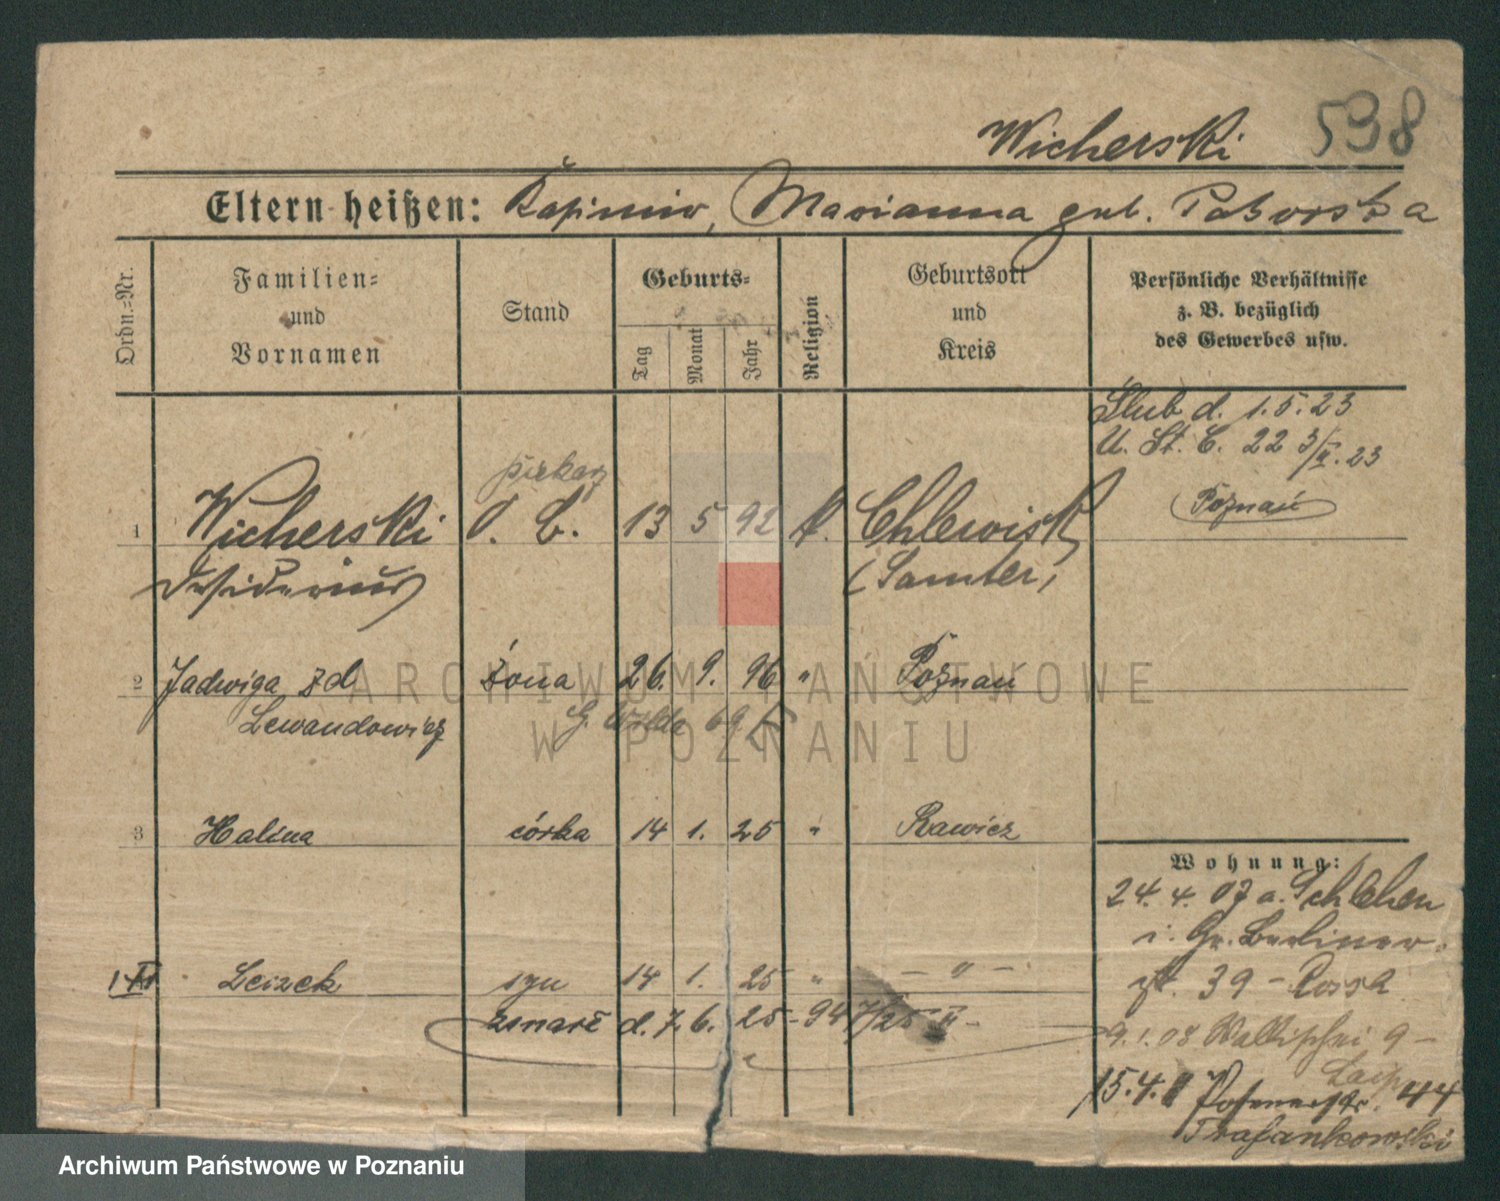 Wicherski 598
Eltern heißen: Kazimir, Marianna geb. Taborska
Ordn.=Nr.
Familien=
und
Vornamen
Stand
Geburts=
Tag
Monat
Jahr
Religion
Geburtsort
und
Kreis
Persönliche Verhältnisse
z. B. bezüglich
des Gewerbes usw.
Ślub d. 1.5.23
U. St. C. 22 3/V.23
Poznań
piekarz
1 Wicherski 13 5 92 k. Chlewisk
Desiderius (Samter)
2 Jadwiga zd żona 26. 9. 96 " Poznań
Lewandowicz G. Wilda 69
3 Halina córka 14 1. 25 " Rawicz
Leszek syn 14 1. 25 " — " —
zmarł d. 7. 6. 25 - 947/25 II -
Wohnung:
24. 4. 07 a. Schlehen
i. Gr. Berliner-
st. 39 -
9.1.08 Wallischei 9 -
15.4. Posenerstr. 44
ARCHIWUM PAŃSTWOWE
W POZNANIU
Archiwum Państwowe w Poznaniu